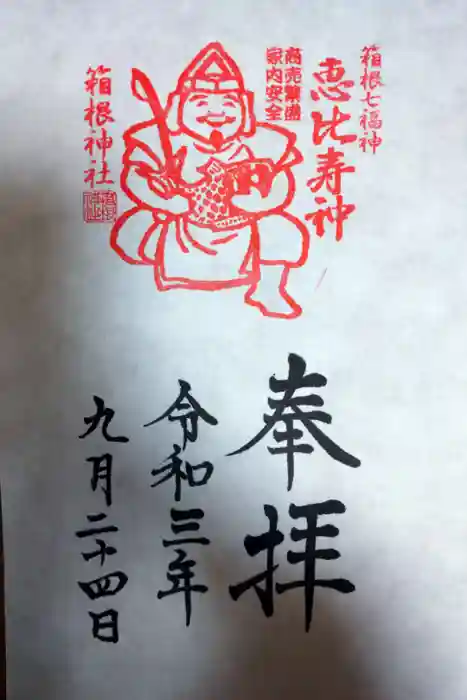 箱根七福神
恵比寿神
商売繁盛
家内安全
箱根神社
奉拝
令和三年
九月二十四日